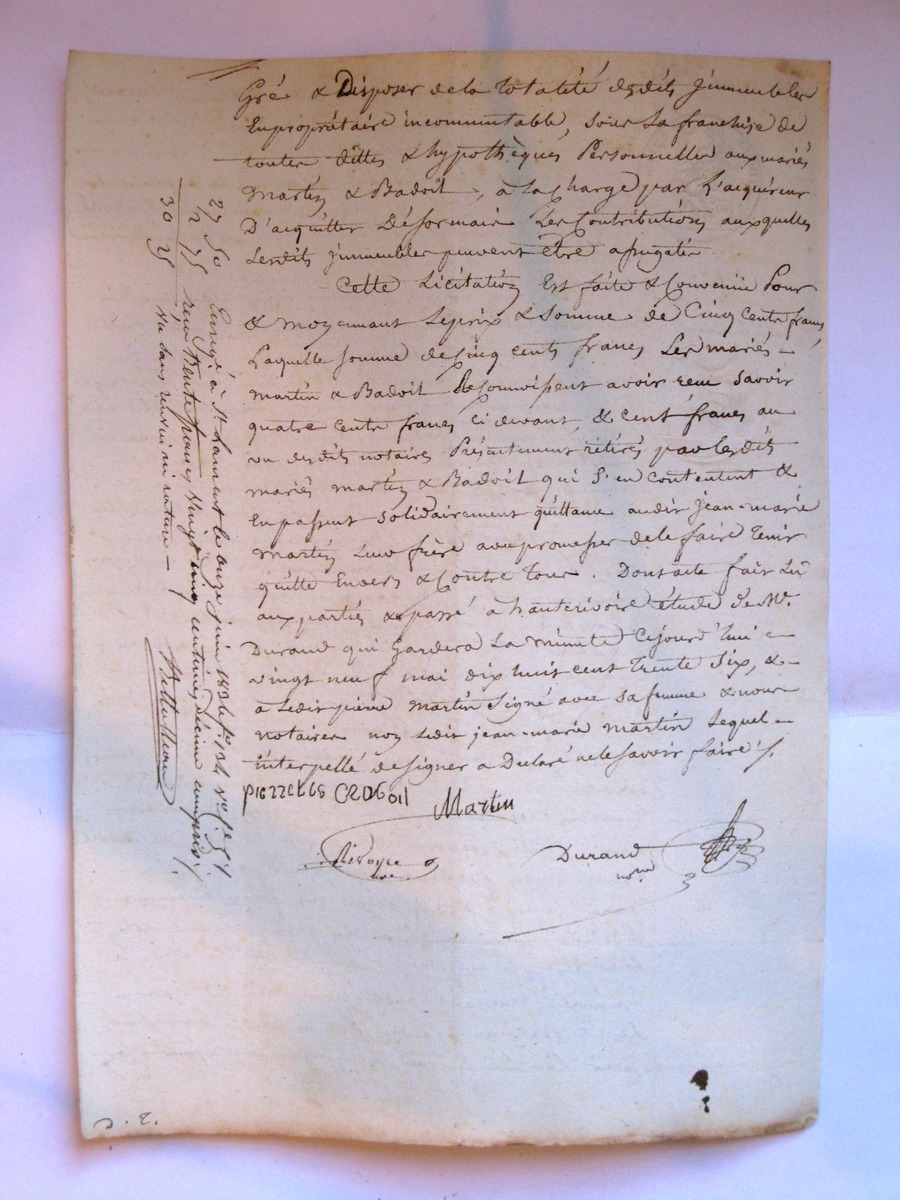 Gré & Disposer de la totalité desdits jmmeubles
En propriétaire incommutable, sous la franchise de
toutes dettes & hypothèques Personnelles aux mariés
Martin & Badoil, à la charge par L'acquéreur
D'acquitter Désormais Les Contributions auxquelles
Lesdits jmmeubles peuvent être assugétis
Cette Licitation Est faite & Convenüe Pour
& moyennant Le prix & Somme de Cinq Cents francs,
Laquelle Somme de cinq cents francs Les mariés
martin & Badoil Reconnoissent avoir reçu Savoir
quatre cents francs ci devant, & cent francs au
vu desdits notaires Présentement retirés par lesdits
mariés martin & Badoil qui S'en contentent &
En passent solidairement quittance audit jean-marie
Martin Leur frère avec promesses de le faire tenir
quitte Envers & Contre tous. Dont acte fait Lû
aux parties & passé à hauterivoire étude de Me.
Durand qui Gardera La minute Cejourd'hui
vingt neuf mai dix huit cent trente Six, &
a Ledit pierre Martin Signé avec Sa femme & nous
notaires non Ledit jean-marie Martin Lequel
interpellé de signer a Déclaré ne le savoir faire /.
Martin
Durand
nore
27 50
2 75
30 25
Enregé à St Laurent le onze juin 1836 fo 34
reçu trente francs vingt cinq centimes décime compris /.
vu sans renvoi ni rature —